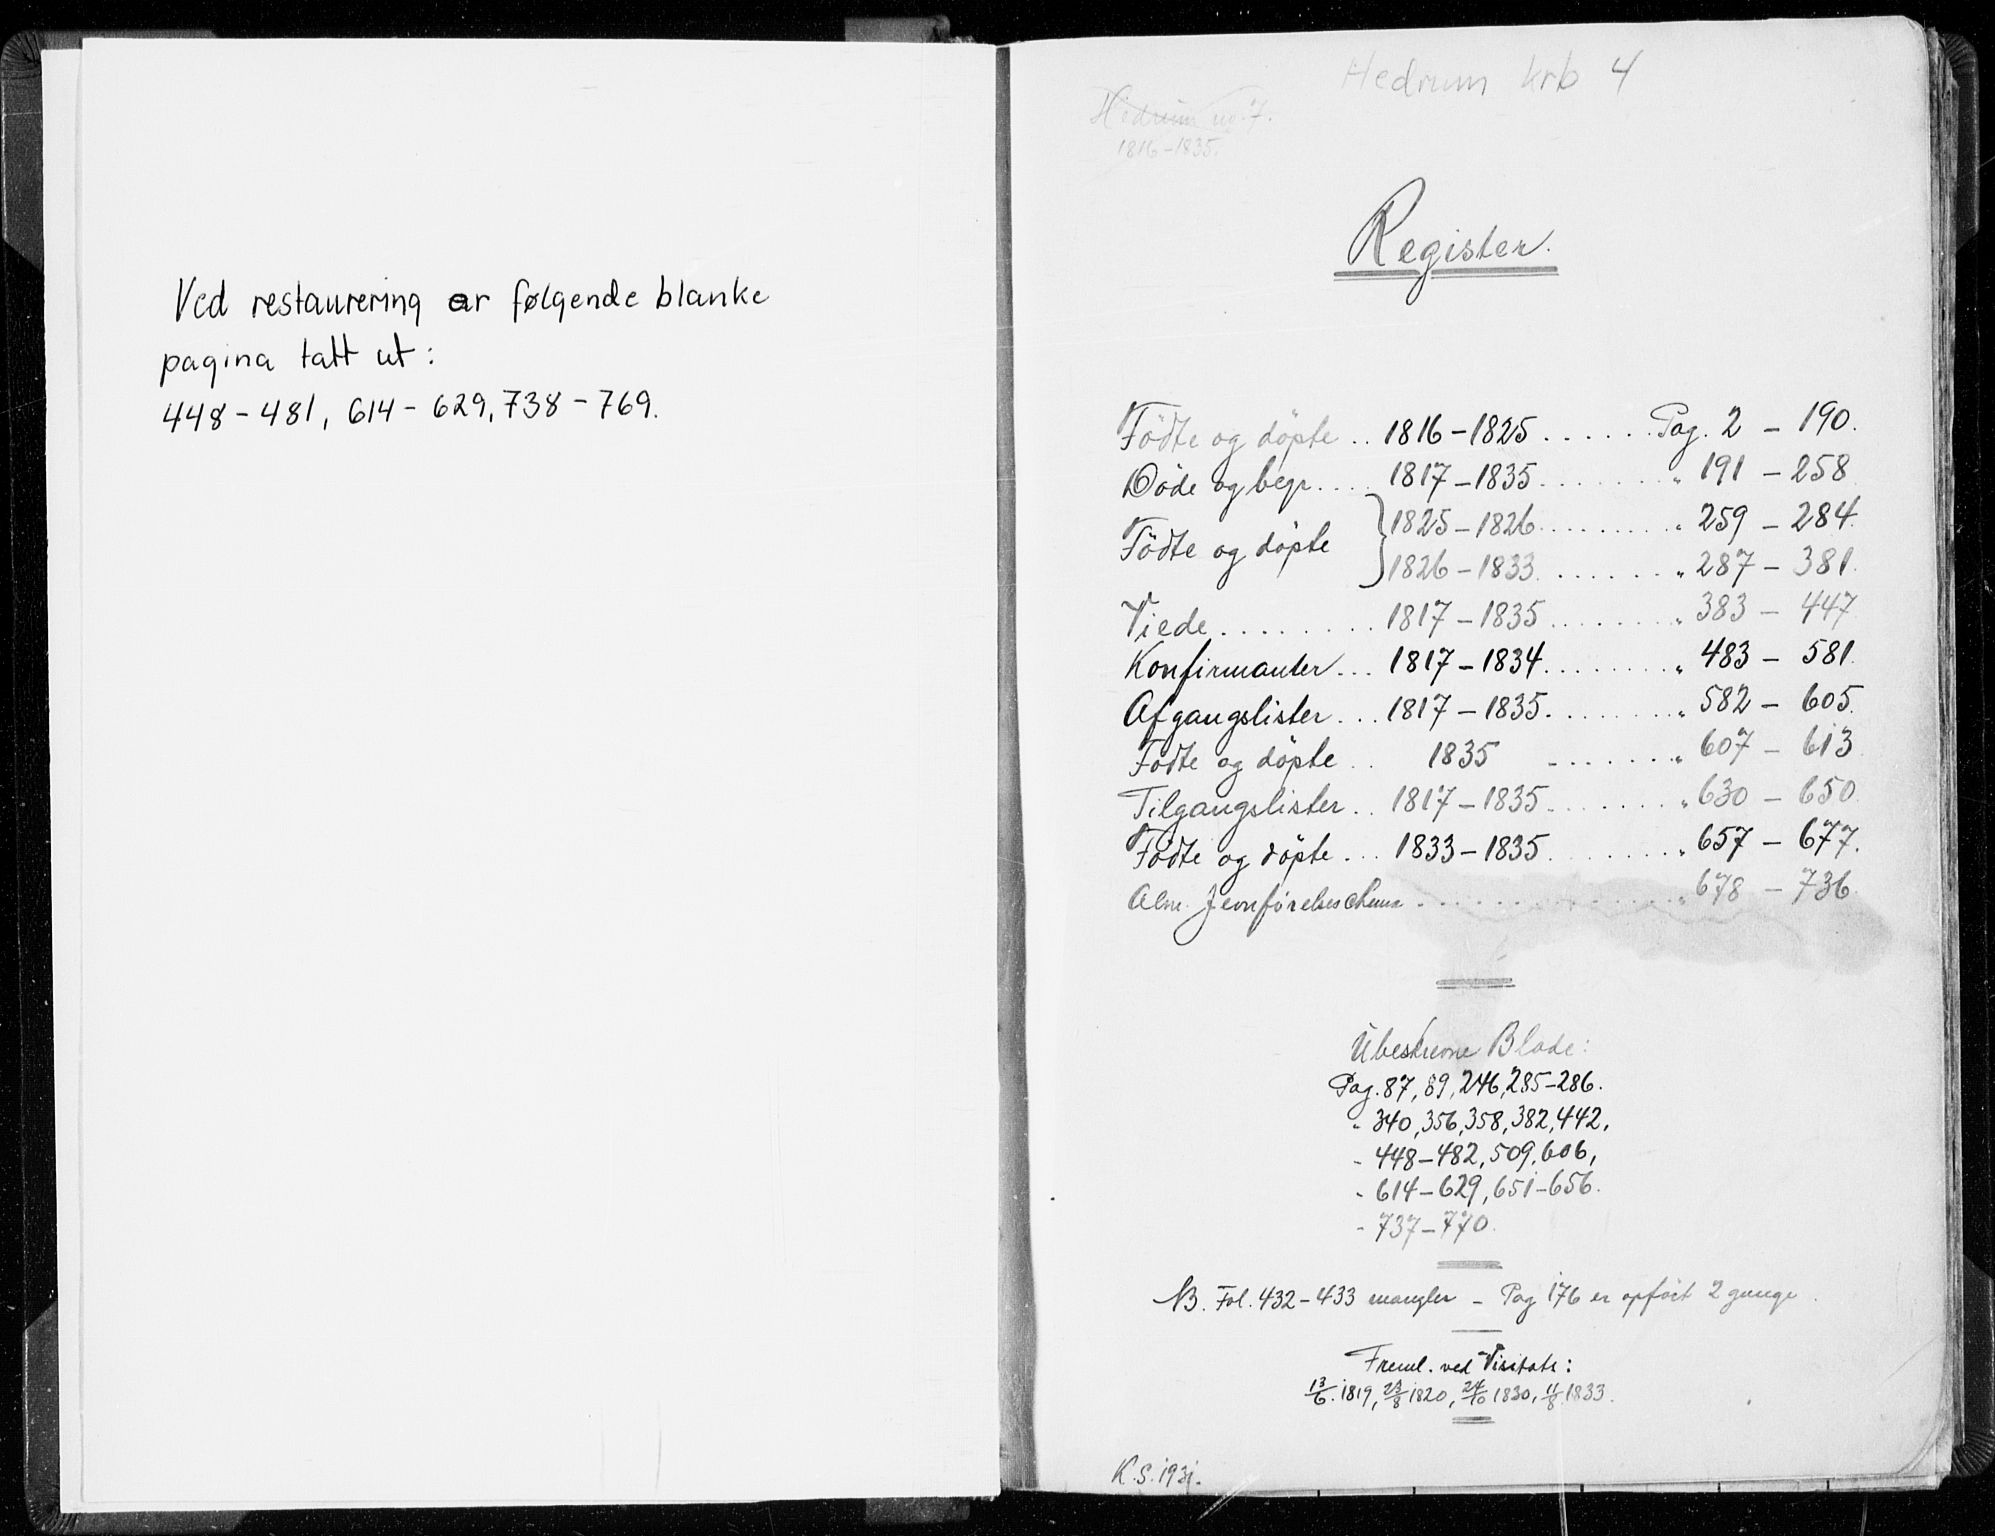 Ved restaurering er følgende blanke
pagina tatt ut:
448-481, 614-629, 738-769.
Hedrum krb 4
Hedrum no. 7.
1816-1835.
Register.
Födte og döpte .. 1816-1825 ...... Pag. 2 - 190.
Döde og begr. ... 1817-1835 ....... " 191 - 258
Födte og döpte } 1825-1826 ........ " 259 - 284.
1826-1833 ....... " 287 - 381.
Viede ........ 1817-1835 ....... " 383 - 447
Konfirmanter ... 1817-1834 ....... " 483 - 581.
Afgangslister ... 1817-1835 ....... " 582 - 605.
Födte og döpte .. 1835 ....... " 607 - 613
Tilgangslister .. 1817-1835 ....... " 630 - 650
Födte og döpte ... 1833-1835 ....... " 657 - 677.
Alm. Jevnførelseschema ............... " 678 - 736.
Ubeskrevne Blade:
Pag. 87, 89, 246, 285-286.
" 340, 356, 358, 382, 442,
- 448-482, 509, 606,
- 614-629, 651-656.
- 737-770.
NB. Fol. 432-433 mangler - Pag 176 er opført 2 gange.
Freml. ved Visitats:
13/6. 1819, 23/8 1820, 24/10 1830, 11/8 1833.
K.S. 1931.